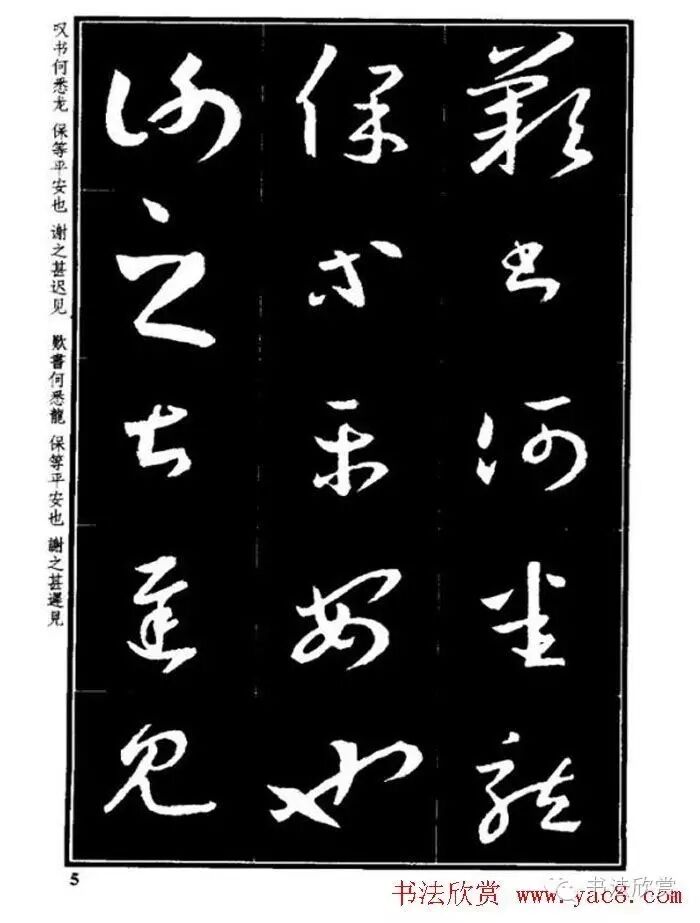 歎书何悉龍
保等平安也
謝之甚遲見
叹书何悉龙 保等平安也 谢之甚迟见 歎書何悉龍 保等平安也 謝之甚遲見
5
书法欣赏 www.yac8.com
书法欣赏